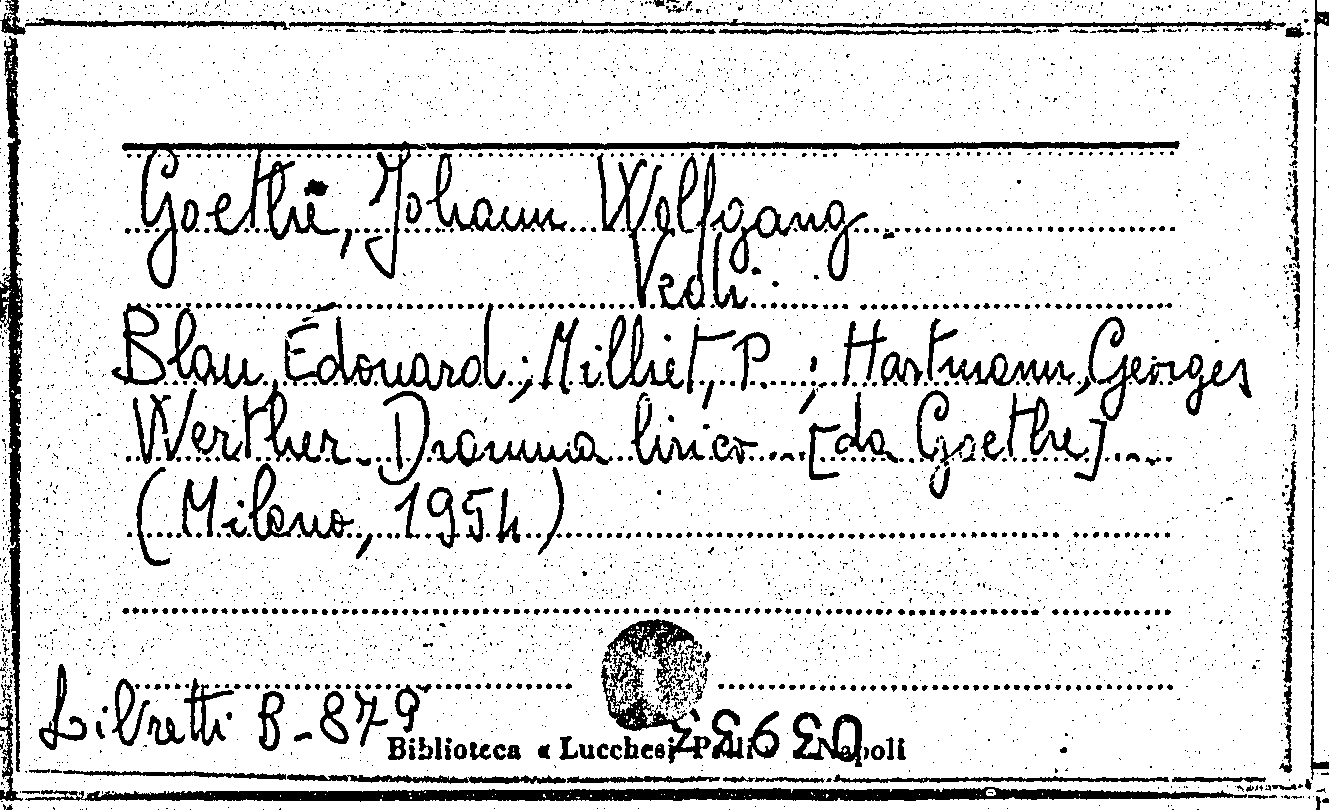 Goethe, Johann Wolfgang.
Vedi:
Blau, Édouard; Milliet, P.; Hartmann, Georges
Werther. Dramma lirico...[da Goethe]...
(Milano, 1954)
Libretti B-879
Biblioteca « Lucchesi Palli » Napoli